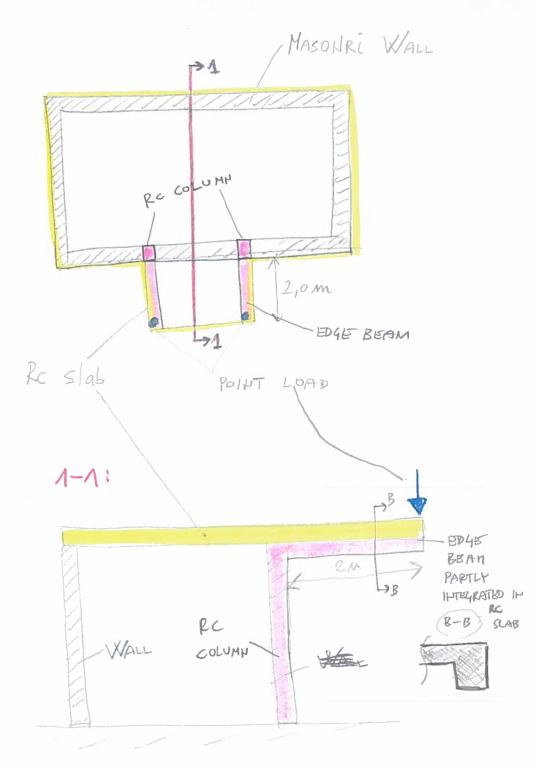 1
MASONRI WALL
RC COLUMN
2,0m
1
EDGE BEAM
RC slab
POINT LOAD
1-1:
B
EDGE
BEAM
PARTLY
INTEGRATED IN
RC
SLAB
2M
B
B-B
RC
COLUMN
WALL